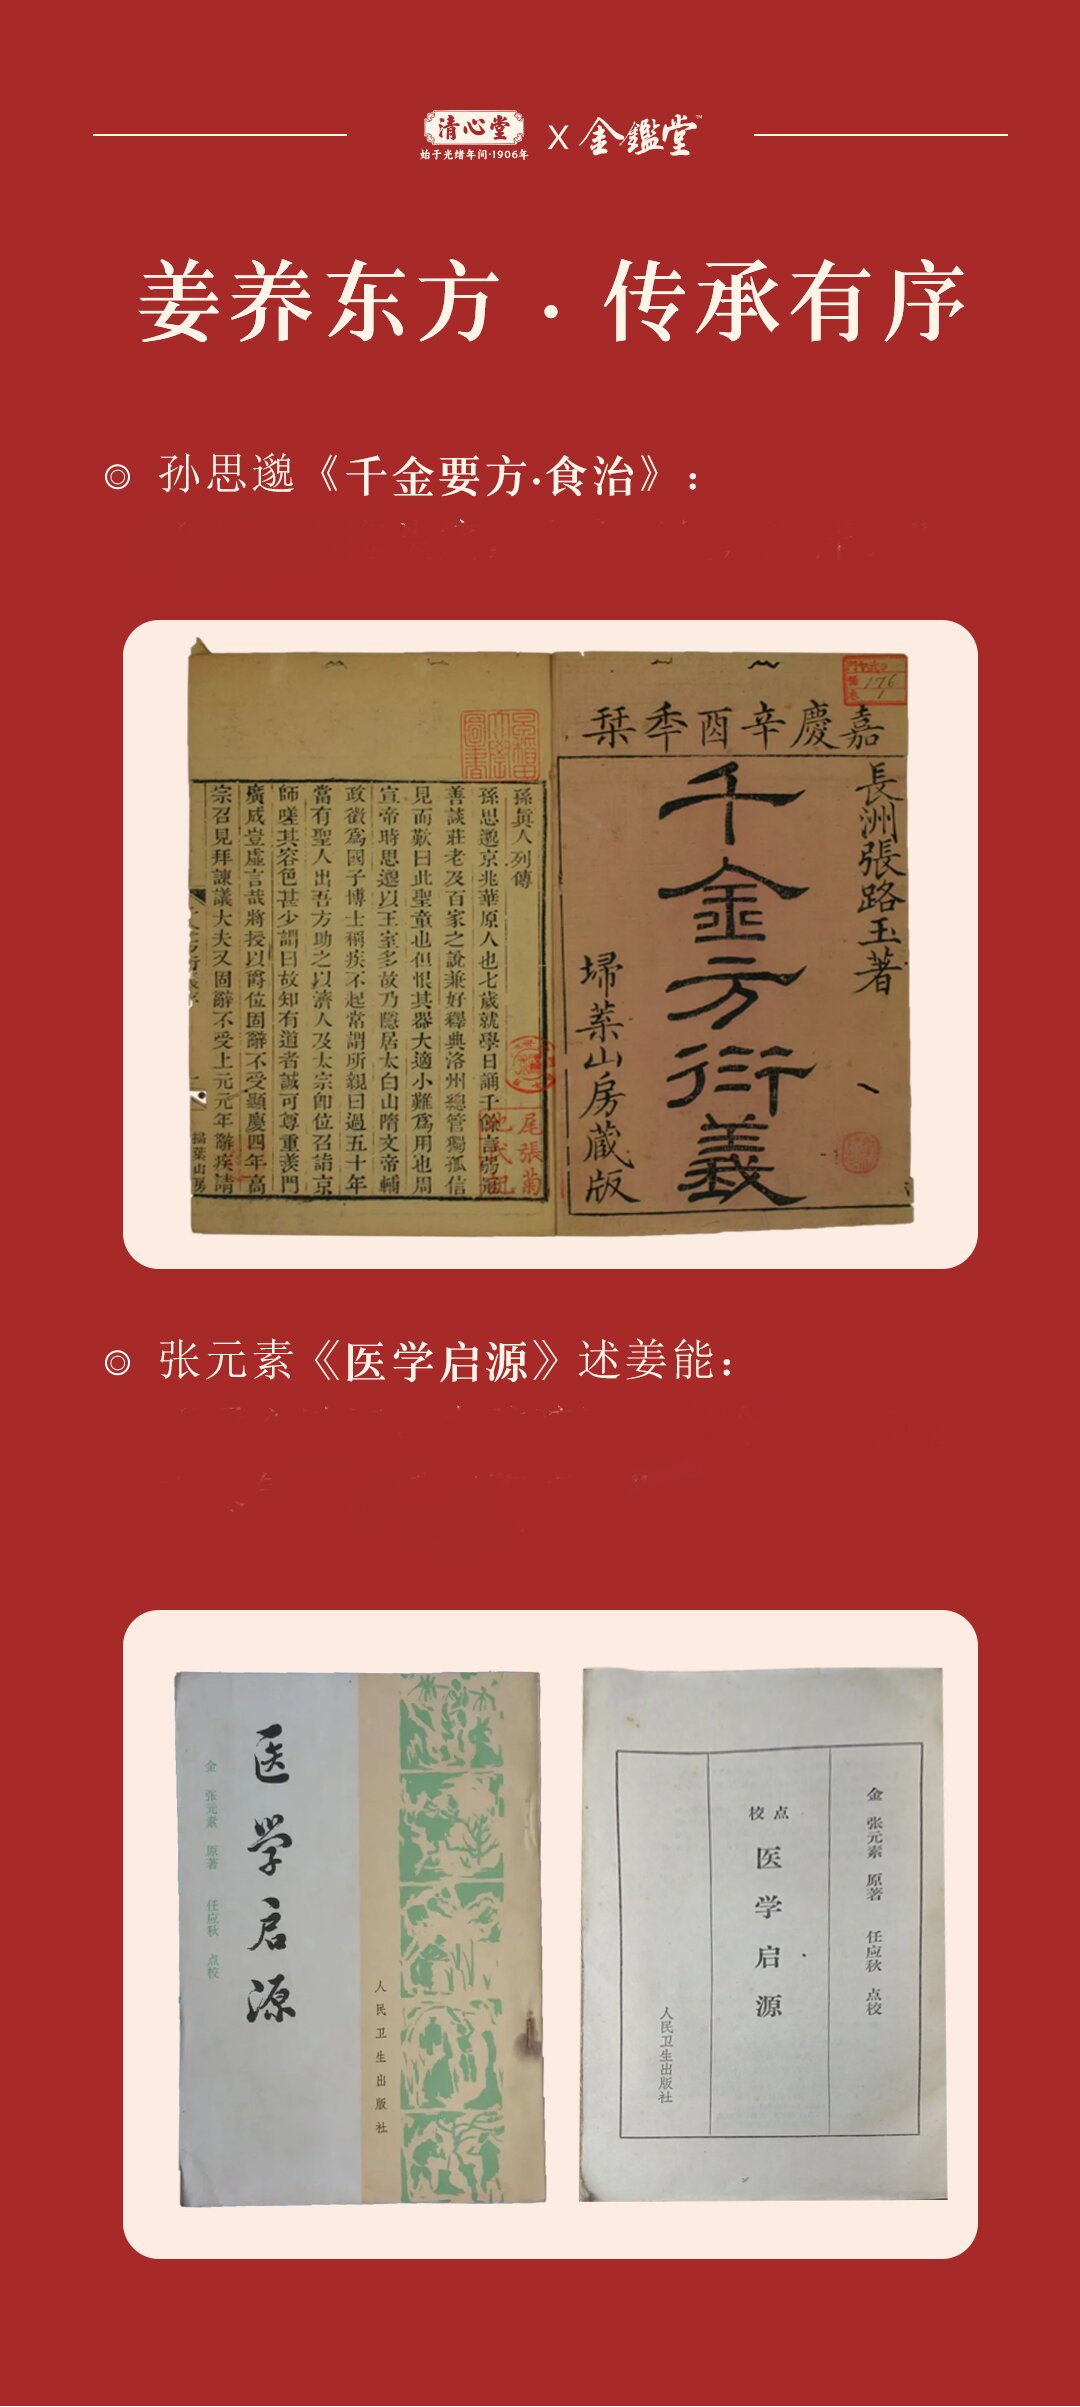 清心堂
始于光绪年间·1906年
X
金鑑堂™
姜养东方·传承有序
孙思邈《千金要方·食治》：
嘉慶辛酉秊栞
長洲張路玉著
千金方衍義
埽葉山房藏版
孫真人列傳
孫思邈京兆華原人也七歲就學日誦千餘言弱冠
善談莊老及百家之說兼好釋典洛州總管獨孤信
見而歎曰此聖童也但恨其器大適小難為用也周
宣帝時思邈以王室多故乃隱居太白山隋文帝輔
政徵為國子博士稱疾不起常謂所親曰過五十年
當有聖人出吾方助之以濟人及太宗卽位召詣京
師嗟其容色甚少謂曰故知有道者誠可尊重羨門
廣成豈虛言哉將授以爵位固辭不受顯慶四年高
宗召見拜諫議大夫又固辭不受上元元年辭疾請
掃葉山房
176
1
张元素《医学启源》述姜能：
医学启源
金 张元素 原著 任应秋 点校
人民卫生出版社
金 张元素 原著 任应秋 点校
点校
医学启源
人民卫生出版社